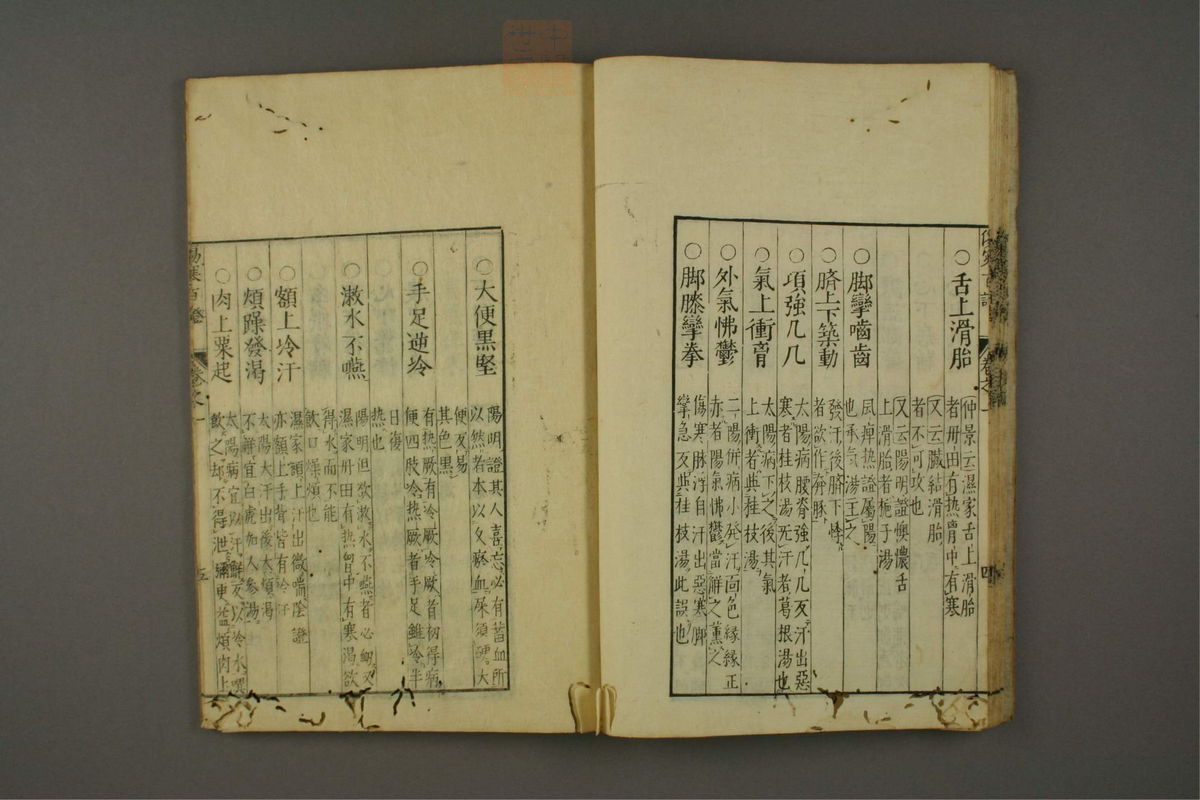 ○舌上滑胎
仲景云濕家舌上滑胎
者丹田有热胷中有寒
又云臓結滑胎
者不可攻也
又云陽明證懊憹舌
上滑胎者梔子湯
○脚攣嚙齒
風痺热證屬陽
也承氣湯主之
○臍上下築動
發汗後臍下悸
者欲作奔豚
○項強几几
太陽病腰脊強几几反汗出惡
寒者桂枝湯无汗者葛根湯也
○氣上衝胷
太陽病下之後其氣
上衝者與桂枝湯
○外氣怫鬱
二陽併病小发汗面色縁縁正
赤者陽氣怫鬱當解之薰之
○脚膝攣拳
傷寒脉浮自汗出惡寒脚
攣急反與桂枝湯此誤也
卷之一
四
○大便黒堅
陽明證其人喜忘必有蓄血所
以然者本以久瘀血屎須硬大
便反易
其色黒
○手足逆冷
有热厥有冷厥冷厥者初得病
便四肢冷热厥者手足雖冷半
日復
热也
○漱水不嚥
陽明但欲漱水不嚥者必衂又
濕家丹田有热胷中有寒渴欲
得水而不能
飲口燥煩也
○額上冷汗
濕家頭上汗出微喘陰證
亦額上手背皆有冷汗
○煩躁發渴
太陽大汗出後大煩渴
不解宜白虎加人參湯
○肉上粟起
太陽病宜汗解反以冷水噀
飲之却不得泄彌更益煩肉上
傷寒百證
卷之一
五